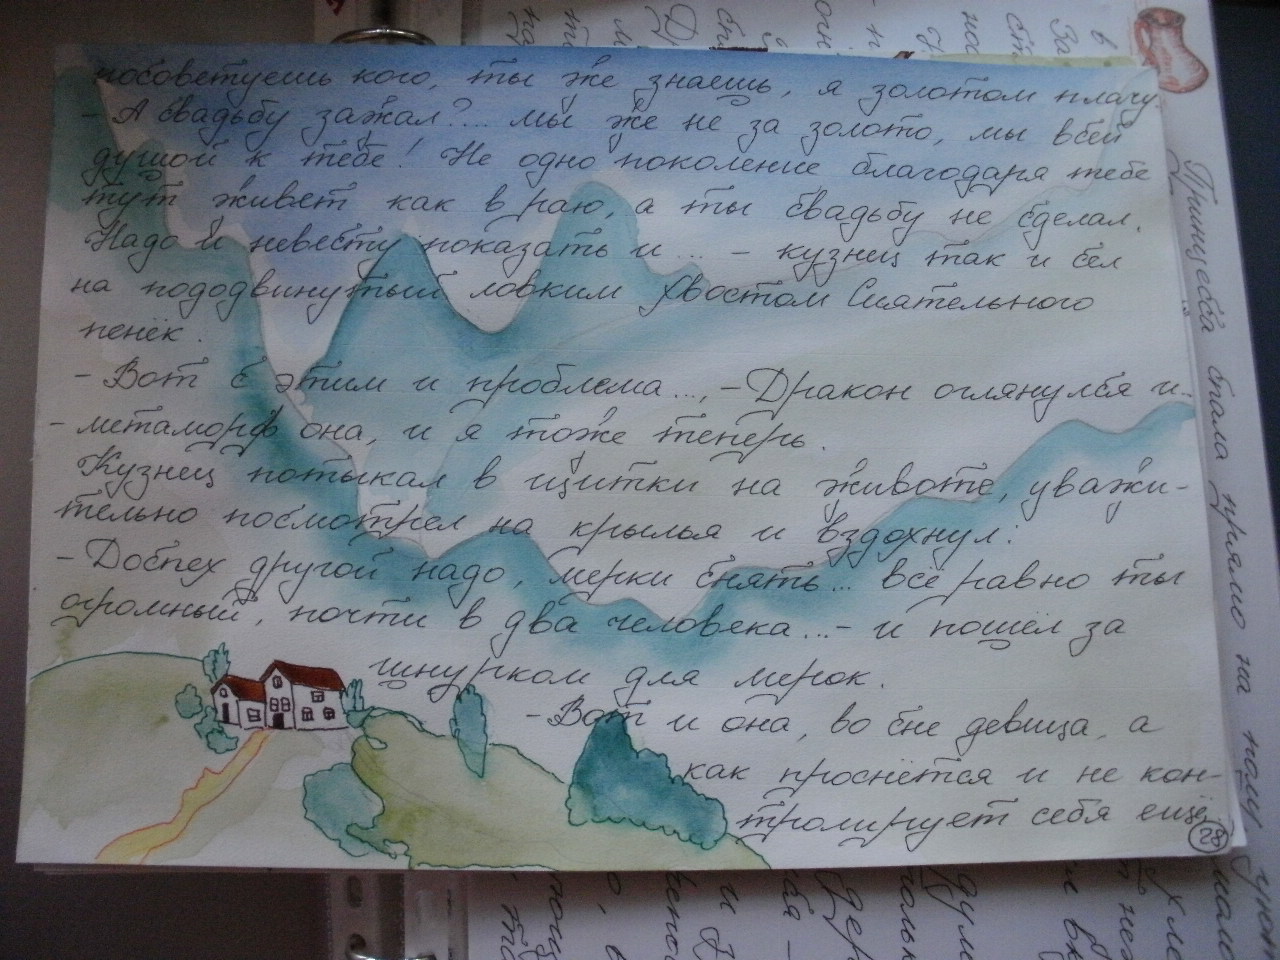 посоветуешь кого, ты же знаешь, я золотом плачу.
- А свадьбу зажал?... мы же не за золото, мы всей
душой к тебе! Не одно поколение благодаря тебе
тут живет как в раю, а ты свадьбу не сделал.
Надо и невесту показать и... - кузнец так и сел
на пододвинутый ловким хвостом Сиятельного
пенёк.
- Вот с этим и проблема..., - Дракон оглянулся и:
- метаморф она, и я тоже теперь.
Кузнец потыкал в щитки на животе, уважи-
тельно посмотрел на крылья и вздохнул:
- Доспех другой надо, мерки снять... всё равно ты
огромный, почти в два человека...- и пошёл за
шнурком для мерок.
- Вот и она, во сне девица, а
как проснётся и не кон-
тролирует себя ещё
28
Принцесса спала прямо на полу